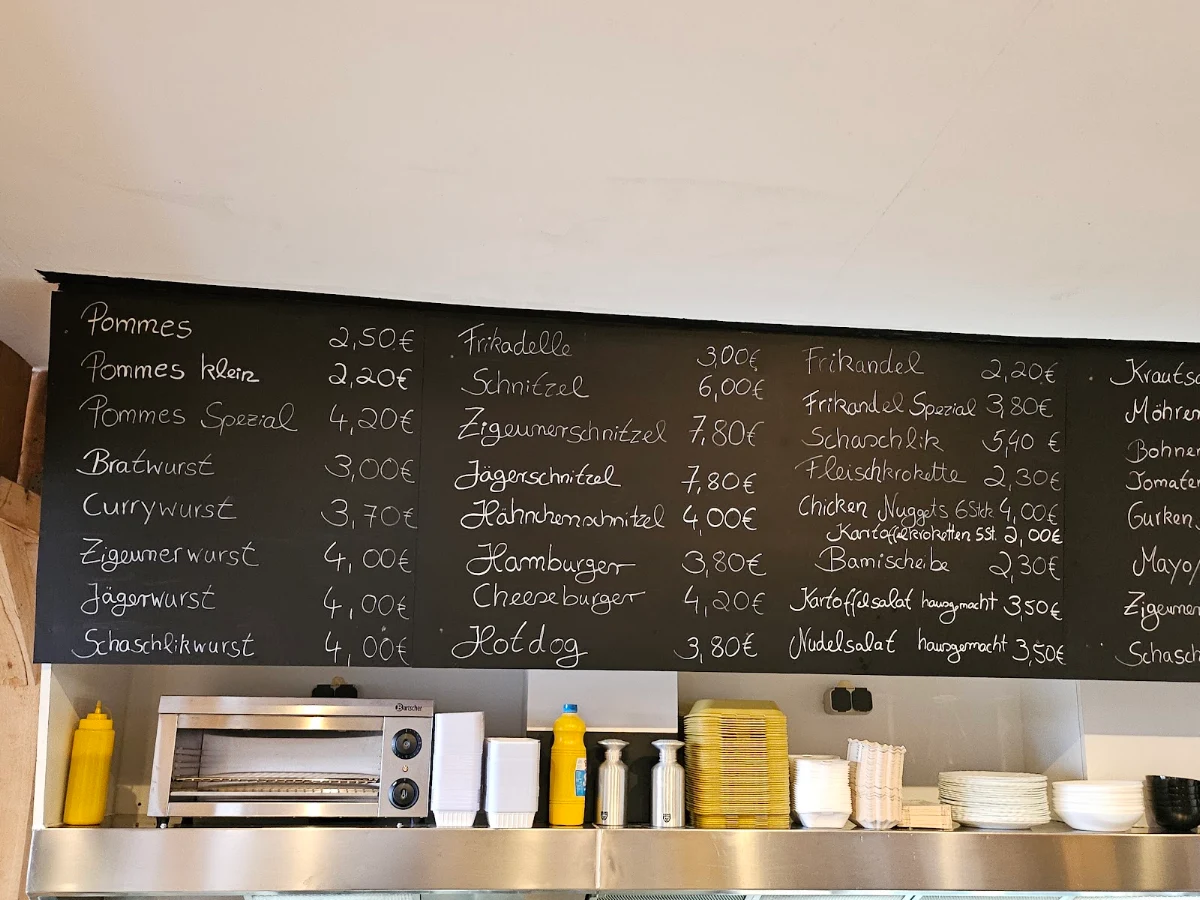 Pommes 2,50€
Pommes klein 2,20€
Pommes Spezial 4,20€
Bratwurst 3,00€
Currywurst 3,70€
Zigeunerwurst 4,00€
Jägerwurst 4,00€
Schaschlikwurst 4,00€
Frikadelle 3,00€
Schnitzel 6,00€
Zigeunerschnitzel 7,80€
Jägerschnitzel 7,80€
Hähnchenschnitzel 4,00€
Hamburger 3,80€
Cheeseburger 4,20€
Hotdog 3,80€
Frikandel 2,20€
Frikandel Spezial 3,80€
Schaschlik 5,40 €
Fleischkrokette 2,30€
Chicken Nuggets 6Stck 4,00€
Kartoffelkroketten 5St. 2,00€
Bamischeibe 2,30€
Kartoffelsalat hausgemacht 3,50€
Nudelsalat hausgemacht 3,50€
Krautsa
Möhren
Bohnen
Tomaten
Gurken
Mayo/
Zigeuner
Schasch
Bartscher